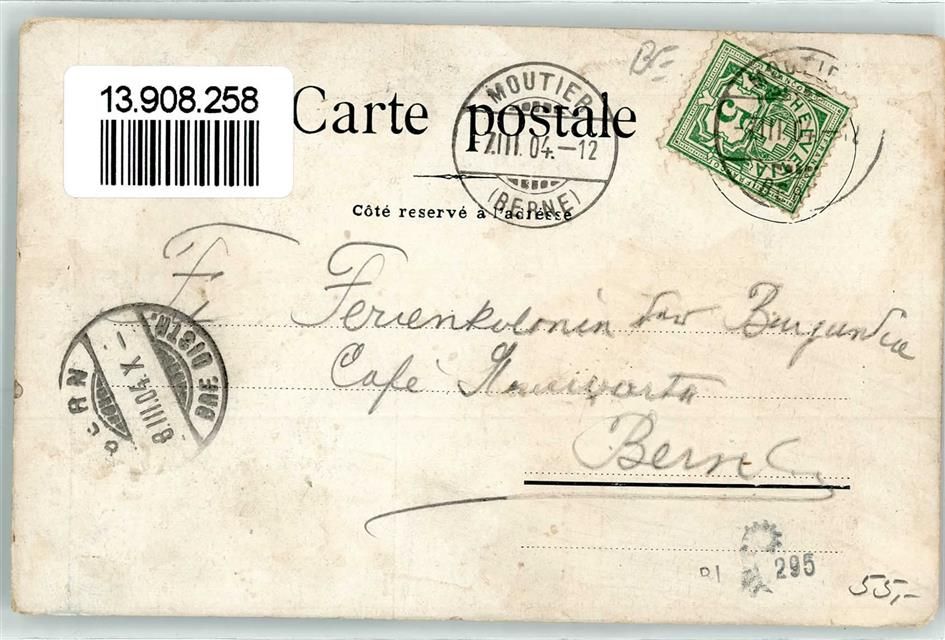 13.908.258
Carte postale
BE
MOUTIER
7.III.04.-12
(BERNE)
MOUTIER
HELVETIA
5
FRANCO
Côté reservé à l'adresse
F. Ferienkolonie der Burgundia
Café Sternwarte
Bern
BERN
8.III.04.X-
BRF. DISTR.
295
55,-